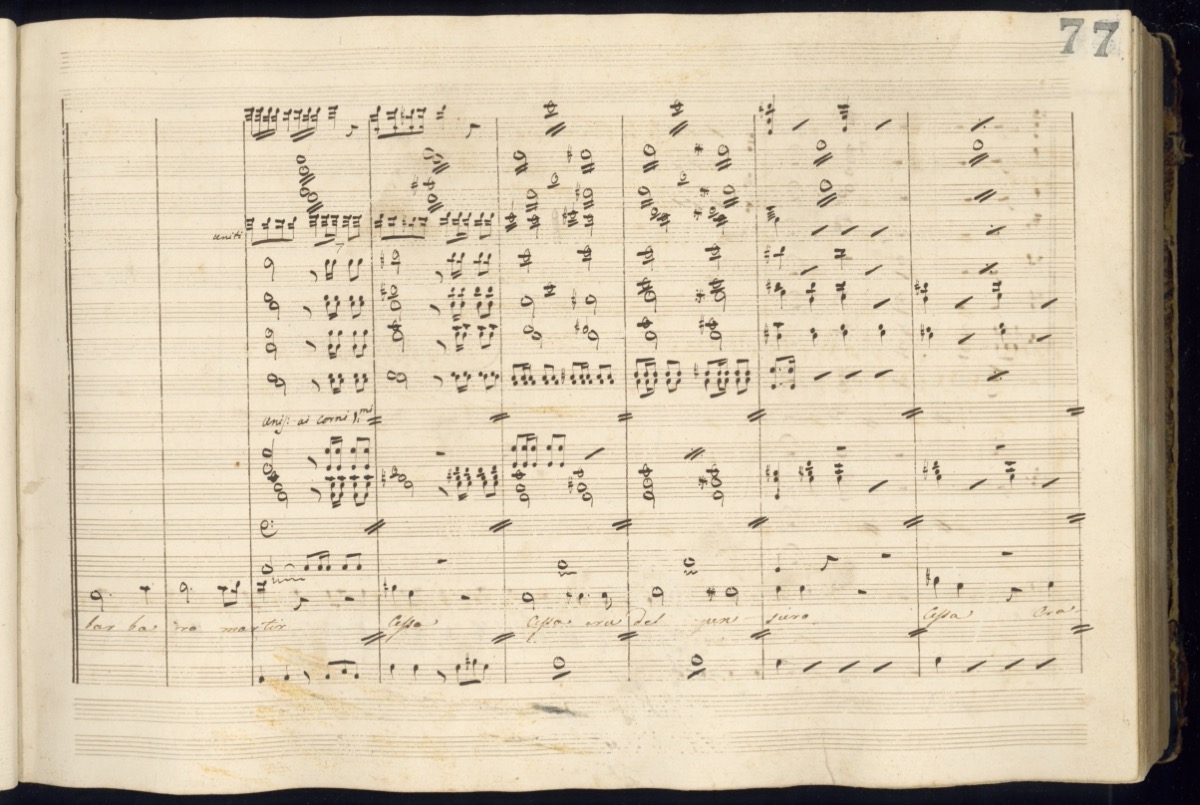 77
uniti
Unis: ai corni 1.mi
bar ba ro martir Cessa Cessa cru del pen siero Cessa Cru